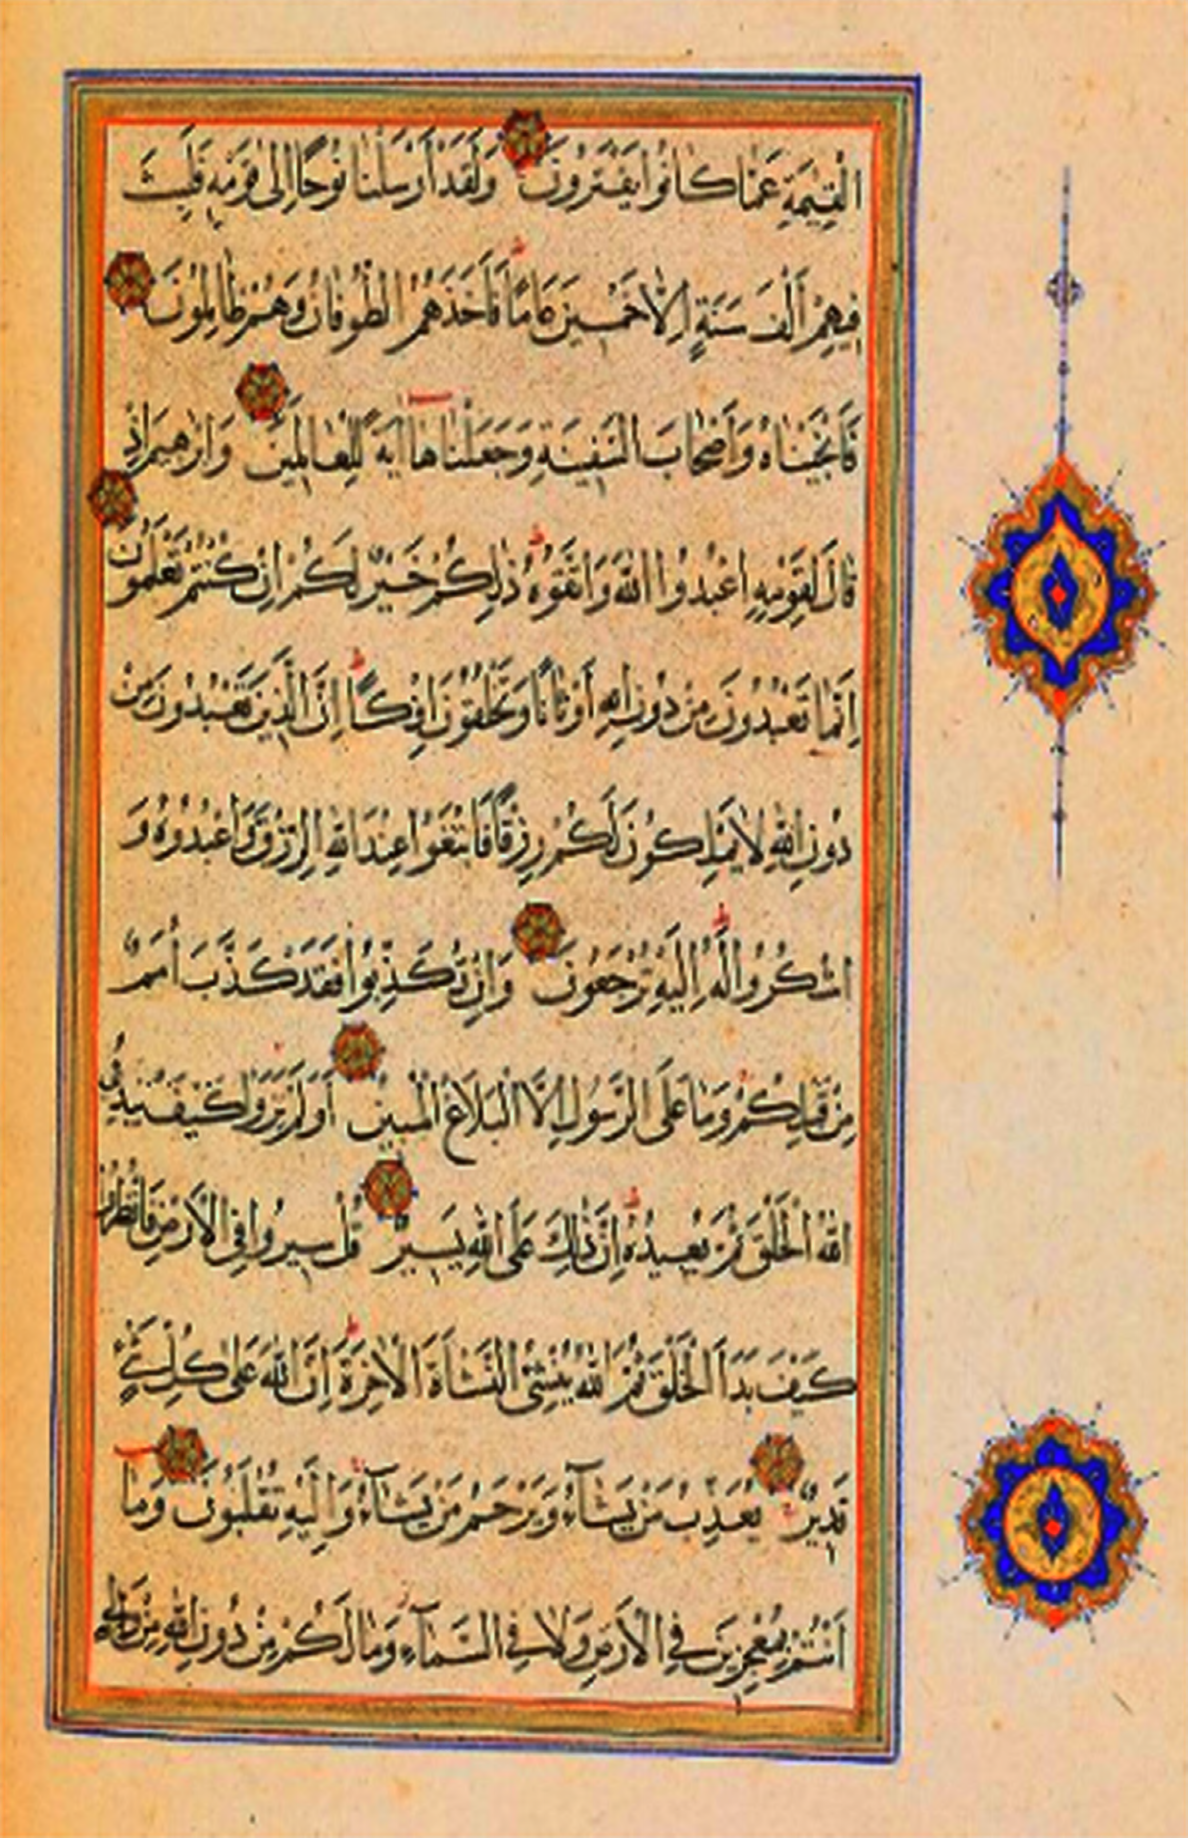 الْقِيٰمَةِ عَمَّا كَانُوا يَفْتَرُونَ وَلَقَدْ أَرْسَلْنَا نُوحًا إِلَى قَوْمِهِ فَلَبِثَ
فِيهِمْ أَلْفَ سَنَةٍ إِلَّا خَمْسِينَ عَامًا فَأَخَذَهُمُ الطُّوفَانُ وَهُمْ ظَالِمُونَ
فَأَنْجَيْنَاهُ وَأَصْحَابَ السَّفِينَةِ وَجَعَلْنَاهَا آيَةً لِلْعَالَمِينَ وَإِبْرٰهِيمَ إِذْ
قَالَ لِقَوْمِهِ اعْبُدُوا اللَّهَ وَاتَّقُوهُ ذٰلِكُمْ خَيْرٌ لَكُمْ إِنْ كُنْتُمْ تَعْلَمُونَ
إِنَّمَا تَعْبُدُونَ مِنْ دُونِ اللَّهِ أَوْثَانًا وَتَخْلُقُونَ إِفْكًا إِنَّ الَّذِينَ تَعْبُدُونَ مِنْ
دُونِ اللَّهِ لَا يَمْلِكُونَ لَكُمْ رِزْقًا فَابْتَغُوا عِنْدَ اللَّهِ الرِّزْقَ وَاعْبُدُوهُ وَ
اشْكُرُوا لَهُ إِلَيْهِ تُرْجَعُونَ وَإِنْ تُكَذِّبُوا فَقَدْ كَذَّبَ أُمَمٌ
مِنْ قَبْلِكُمْ وَمَا عَلَى الرَّسُولِ إِلَّا الْبَلَاغُ الْمُبِينُ أَوَلَمْ يَرَوْا كَيْفَ يُبْدِئُ
اللَّهُ الْخَلْقَ ثُمَّ يُعِيدُهُ إِنَّ ذٰلِكَ عَلَى اللَّهِ يَسِيرٌ قُلْ سِيرُوا فِي الْأَرْضِ فَانْظُرُوا
كَيْفَ بَدَأَ الْخَلْقَ ثُمَّ اللَّهُ يُنْشِئُ النَّشْأَةَ الْآخِرَةَ إِنَّ اللَّهَ عَلَى كُلِّ شَيْءٍ
قَدِيرٌ يُعَذِّبُ مَنْ يَشَآءُ وَيَرْحَمُ مَنْ يَشَآءُ وَإِلَيْهِ تُقْلَبُونَ وَمَا
أَنْتُمْ بِمُعْجِزِينَ فِي الْأَرْضِ وَلَا فِي السَّمَآءِ وَمَا لَكُمْ مِنْ دُونِ اللَّهِ مِنْ وَلِيٍّ